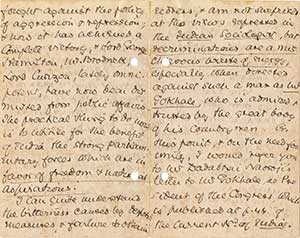 fought against the policy
of aggression & repression,
& now it has achieved a
complete victory, & Lord George
Hamilton, Mr. Brodrick &
Lord Curzon, lately omni-
potent, have now been dis-
missed from public affairs.
The practical thing to do now
is to utilise for the benefit
of India the strong parliam-
entary forces which are in
favor of freedom & national
aspirations.
I can quite understand
the bitterness caused by
measures & failure to obtain
redress, & am not surprised
at the views expressed in
the Indian Sociologist, but
recriminations are a
waste of energy,
especially when directed
against such a man as Mr
Gokhale who is admired &
trusted by the great body
of his countrymen. On
this point, & on the need for
unity, I would refer you
to Mr Dadabhai Naoroji's
letter to Mr Gokhale as Pres-
ident of the Congress which
is published at p. 45 of
the current No of India.